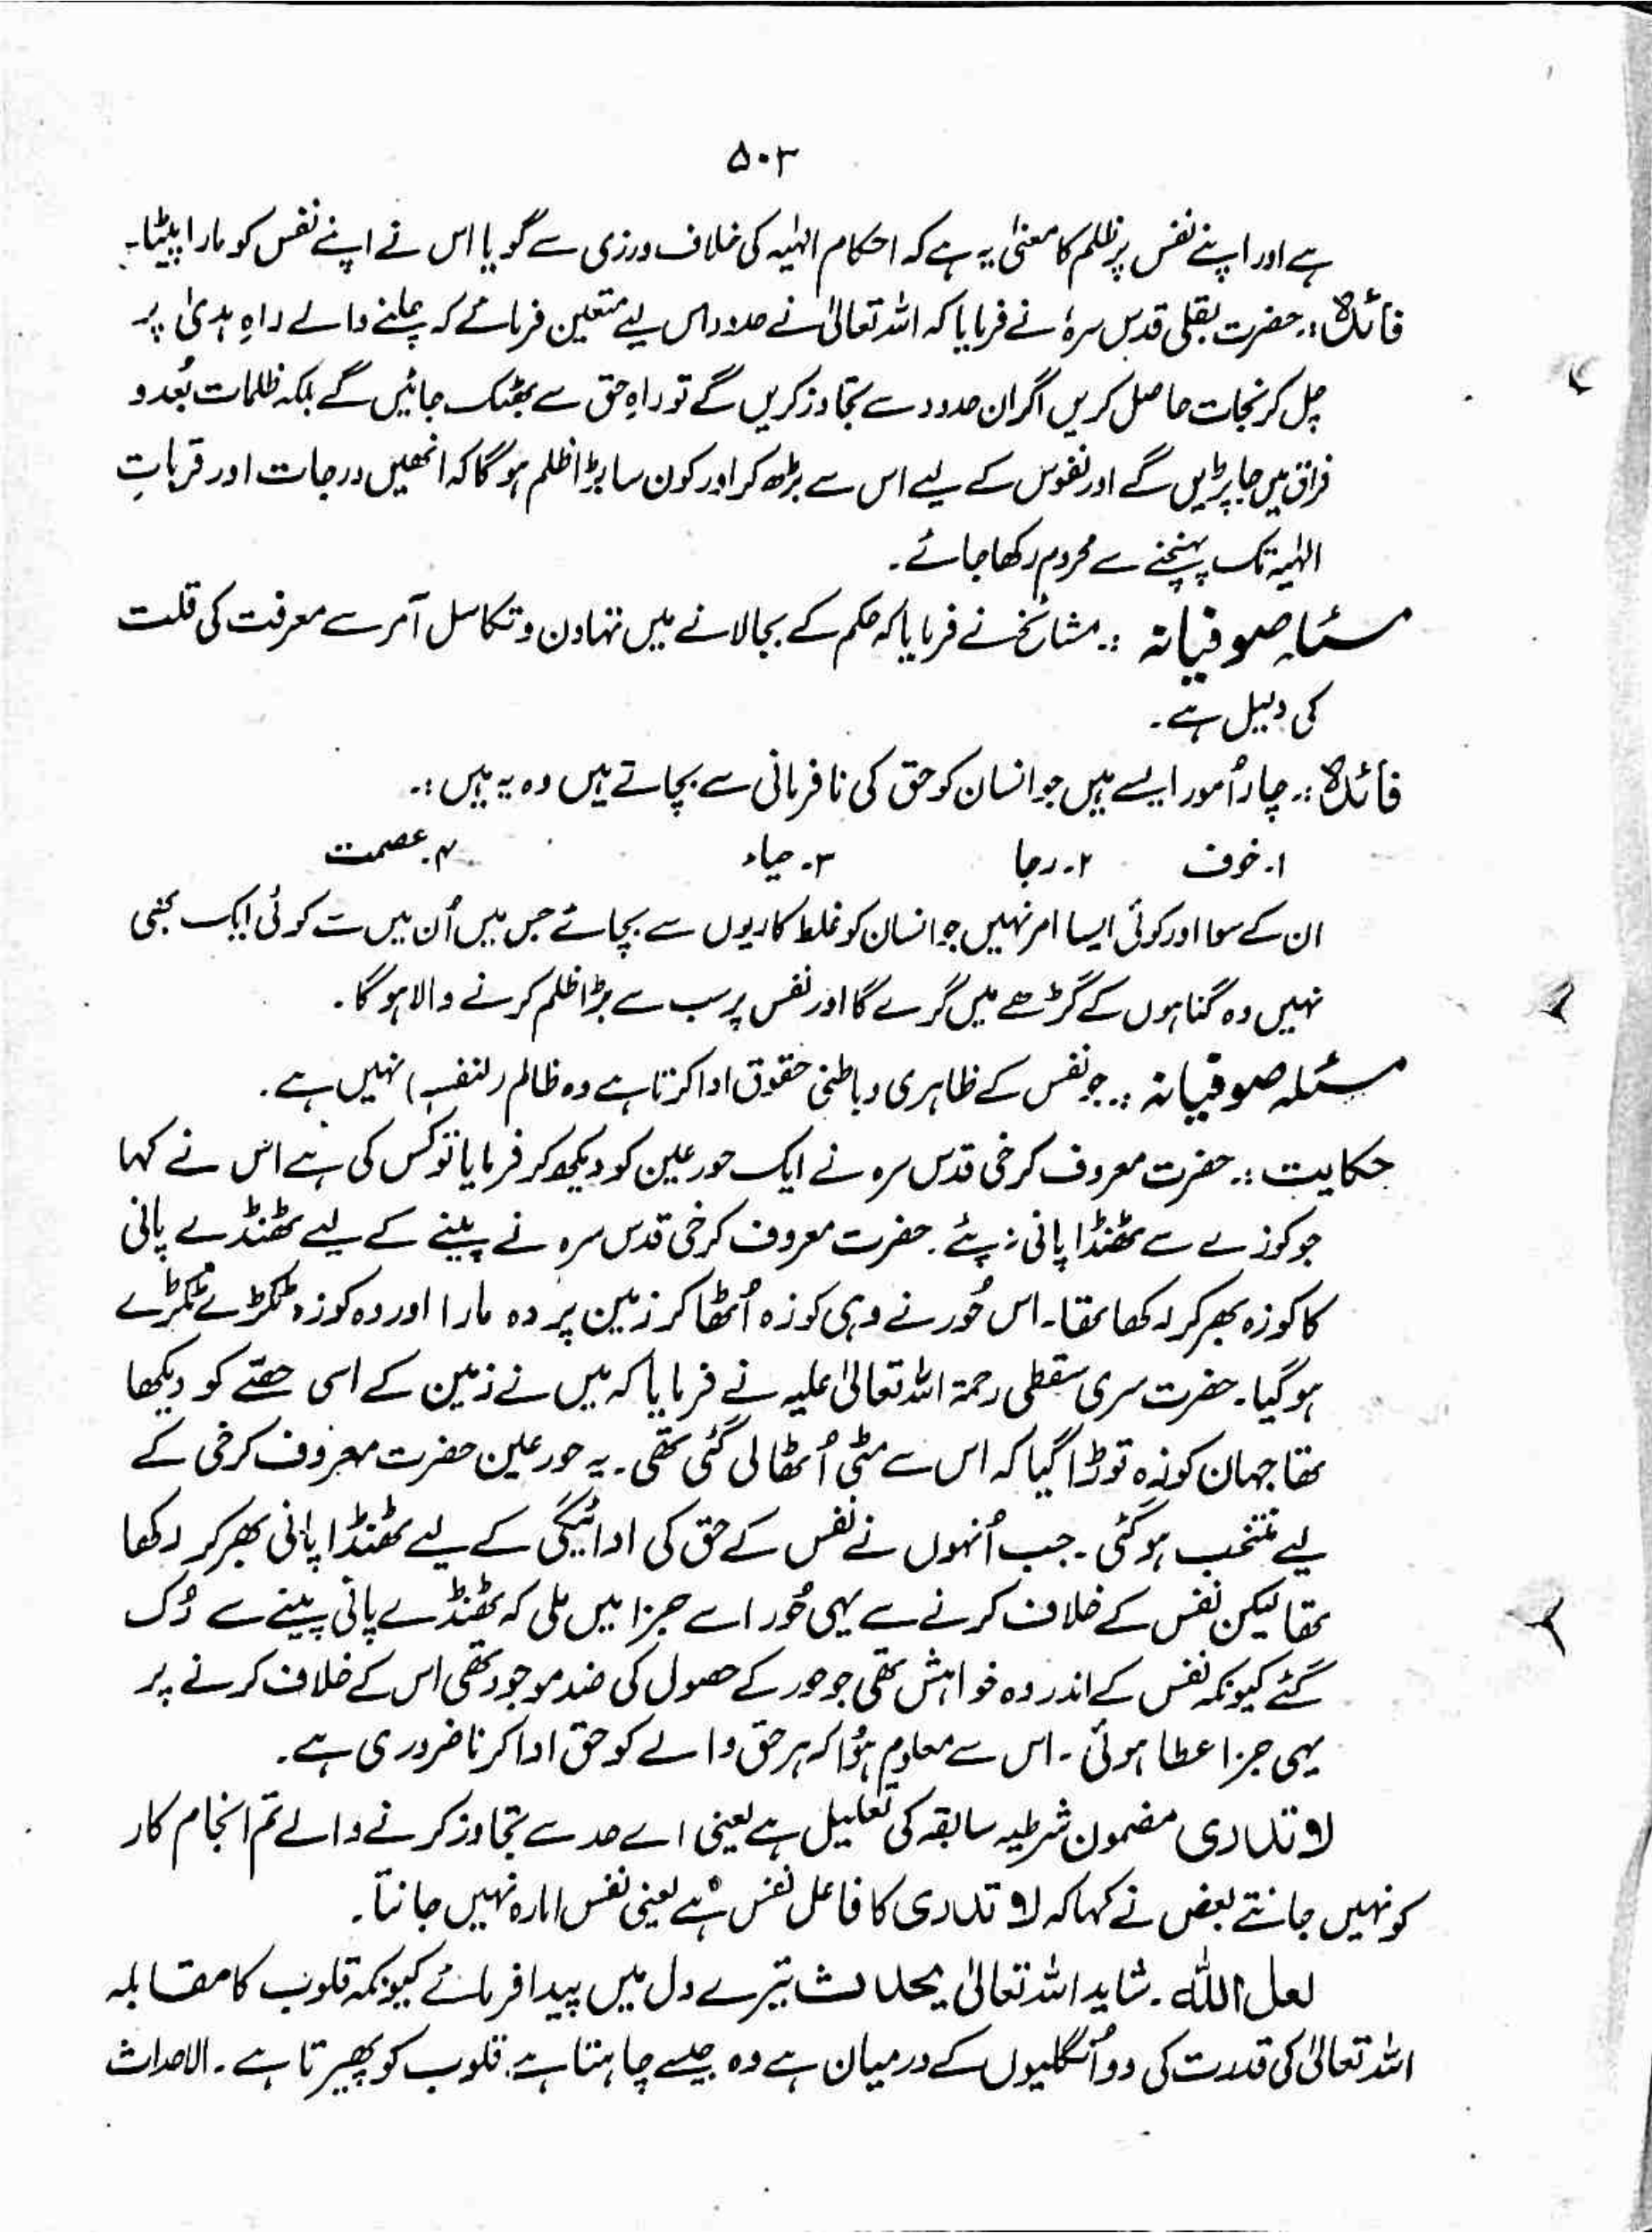 ۵۰۳
ہے اور اپنے نفس پر ظلم کا معنیٰ یہ ہے کہ احکام الٰہیہ کی خلاف ورزی سے گویا اس نے اپنے نفس کو مارا پیٹا۔
فائدہ :۔ حضرت بقلی قدس سرہٗ نے فرمایا کہ اللہ تعالیٰ نے حدود اس لیے متعین فرمائے کہ چلنے والے راہِ ہدیٰ پر
چل کر نجات حاصل کریں اگر ان حدود سے تجاوز کریں گے تو راہِ حق سے بھٹک جائیں گے بلکہ ظلمات بُعد و
فراق میں جا پڑیں گے اور نفوس کے لیے اس سے بڑھ کر اور کون سا بڑا ظلم ہو گا کہ انھیں درجات اور قرباتِ
الٰہیہ تک پہنچنے سے محروم رکھا جائے۔
مسئلہ صوفیانہ :۔ مشائخ نے فرمایا کہ حکم کے بجالانے میں تہاون و تکاسل آمر سے معرفت کی قلت
کی دلیل ہے۔
فائدہ :۔ چار اُمور ایسے ہیں جو انسان کو حق کی نافرمانی سے بچاتے ہیں وہ یہ ہیں :۔
۱۔ خوف ۲۔ رجا ۳۔ حیاء ۴۔ عصمت
ان کے سوا اور کوئی ایسا امر نہیں جو انسان کو غلط کاریوں سے بچائے جس میں اُن میں سے کوئی ایک بھی
نہیں وہ گناہوں کے گڑھے میں گرے گا اور نفس پر سب سے بڑا ظلم کرنے والا ہو گا۔
مسئلہ صوفیانہ :۔ جو نفس کے ظاہری و باطنی حقوق ادا کرتا ہے وہ ظالم (لنفسہ) نہیں ہے۔
حکایت :۔ حضرت معروف کرخی قدس سرہ نے ایک حور عین کو دیکھ کر فرمایا تو کس کی ہے اس نے کہا
جو کوزے سے ٹھنڈا پانی نہ پئے۔ حضرت معروف کرخی قدس سرہ نے پینے کے لیے ٹھنڈے پانی
کا کوزہ بھر کر رکھا تھا۔ اس حُور نے وہی کوزہ اُٹھا کر زمین پر دہ مارا اور وہ کوزہ ٹکڑے ٹکڑے
ہو گیا۔ حضرت سری سقطی رحمۃ اللہ تعالیٰ علیہ نے فرمایا کہ میں نے زمین کے اسی حصّے کو دیکھا
تھا جہان کوزہ توڑا گیا کہ اس سے مٹی اُٹھا لی گئی تھی۔ یہ حور عین حضرت معروف کرخی کے
لیے منتخب ہو گئی۔ جب اُنہوں نے نفس کے حق کی ادائیگی کے لیے ٹھنڈا پانی بھر کر رکھا
تھا لیکن نفس کے خلاف کرنے سے یہی حُور اسے جزا میں ملی کہ ٹھنڈے پانی پینے سے رُک
گئے کیونکہ نفس کے اندر وہ خواہش تھی جو حور کے حصول کی ضد موجود تھی اس کے خلاف کرنے پر
یہی جزا عطا ہوئی۔ اس سے معلوم ہؤا کہ ہر حق والے کو حق ادا کرنا ضروری ہے۔
لا تدری مضمون شرطیہ سابقہ کی تعلیل ہے یعنی اے حد سے تجاوز کرنے والے تم انجام کار
کو نہیں جانتے بعض نے کہا کہ لا تدری کا فاعل نفس ہے یعنی نفس امارہ نہیں جانتا۔
لعل اللّٰہ۔ شاید اللہ تعالیٰ یحدث تیرے دل میں پیدا فرمائے کیونکہ قلوب کا مقابلہ
اللہ تعالیٰ کی قدرت کی دو اُنگلیوں کے درمیان ہے وہ جیسے چاہتا ہے قلوب کو پھیرتا ہے۔ الاحداث